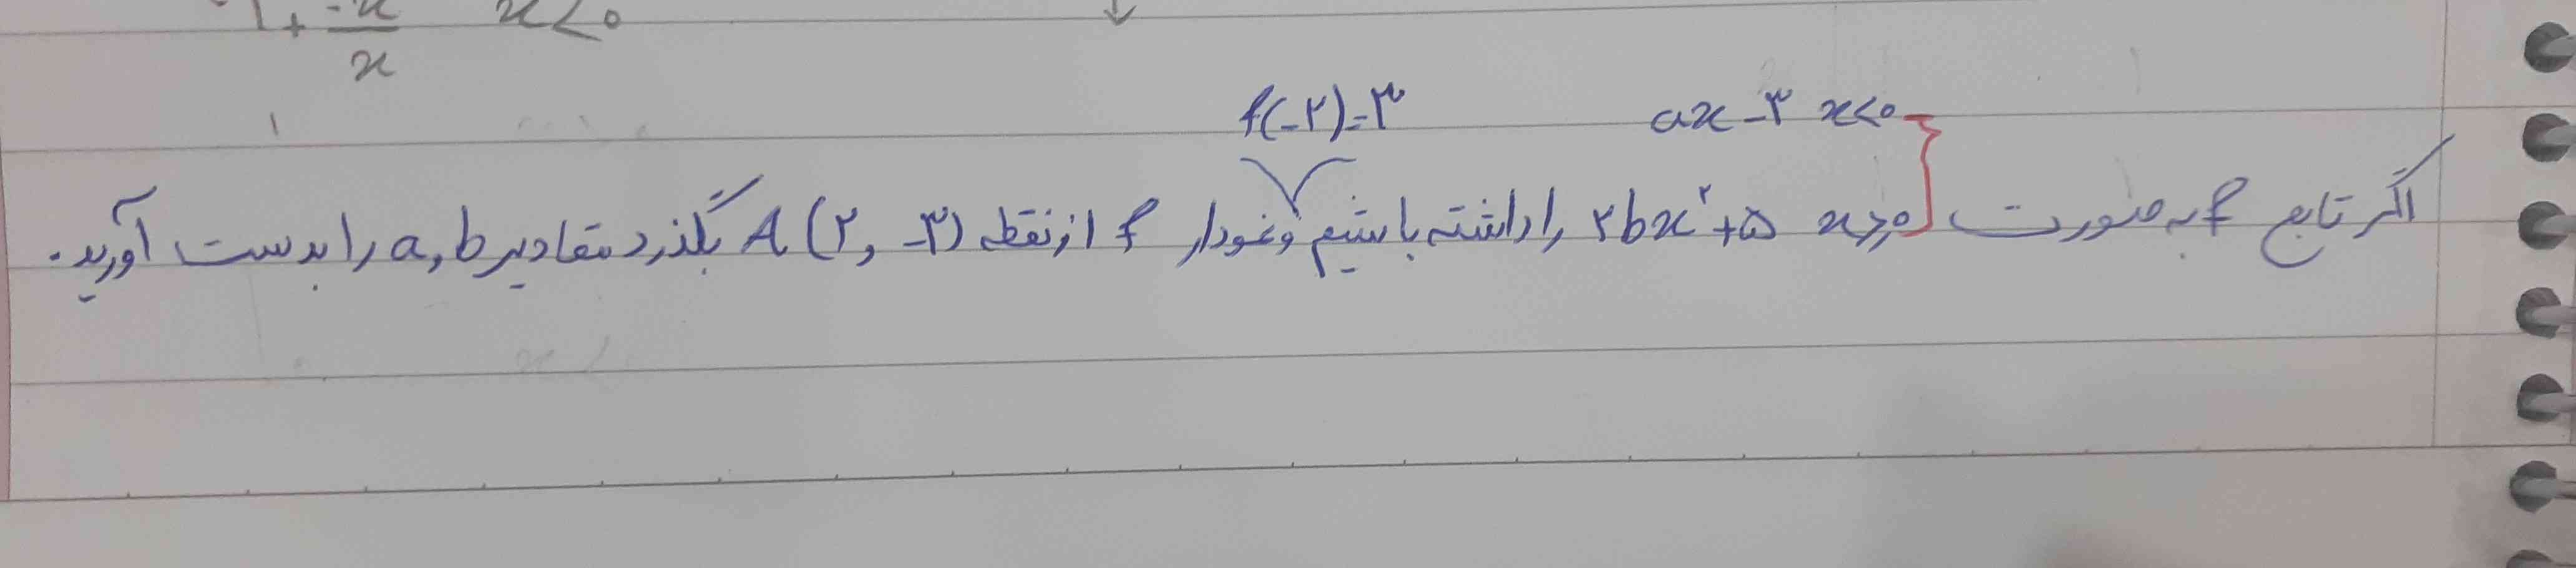 1 + -x/x x<0
f(-۲)=۳ ax-۳ x<0
اگر تابع f به صورت x≥0 ۲bx²+۵ را داشته باشیم و نمودار f از نقطه A(۲, -۳) بگذرد مقادیر a,b را بدست آورید.